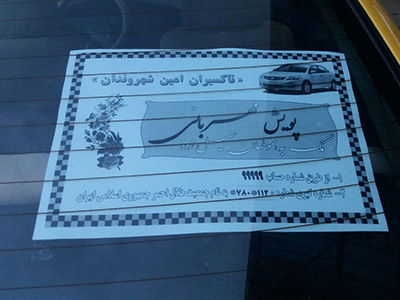 « تاکسیران امین شهروندان »
پویش مهربانی
کمک به هموطنان
۱- از طریق شماره حساب ۹۹۹۹۹
۲- شماره گیری شماره *۱۱۲*۷۸۰* به نام جمعیت هلال احمر جمهوری اسلامی ایران